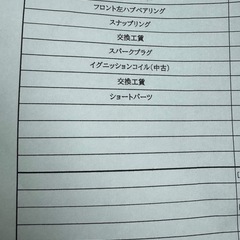 フロント左ハブベアリング
スナップリング
交換工賃
スパークプラグ
イグニッションコイル(中古)
交換工賃
ショートパーツ